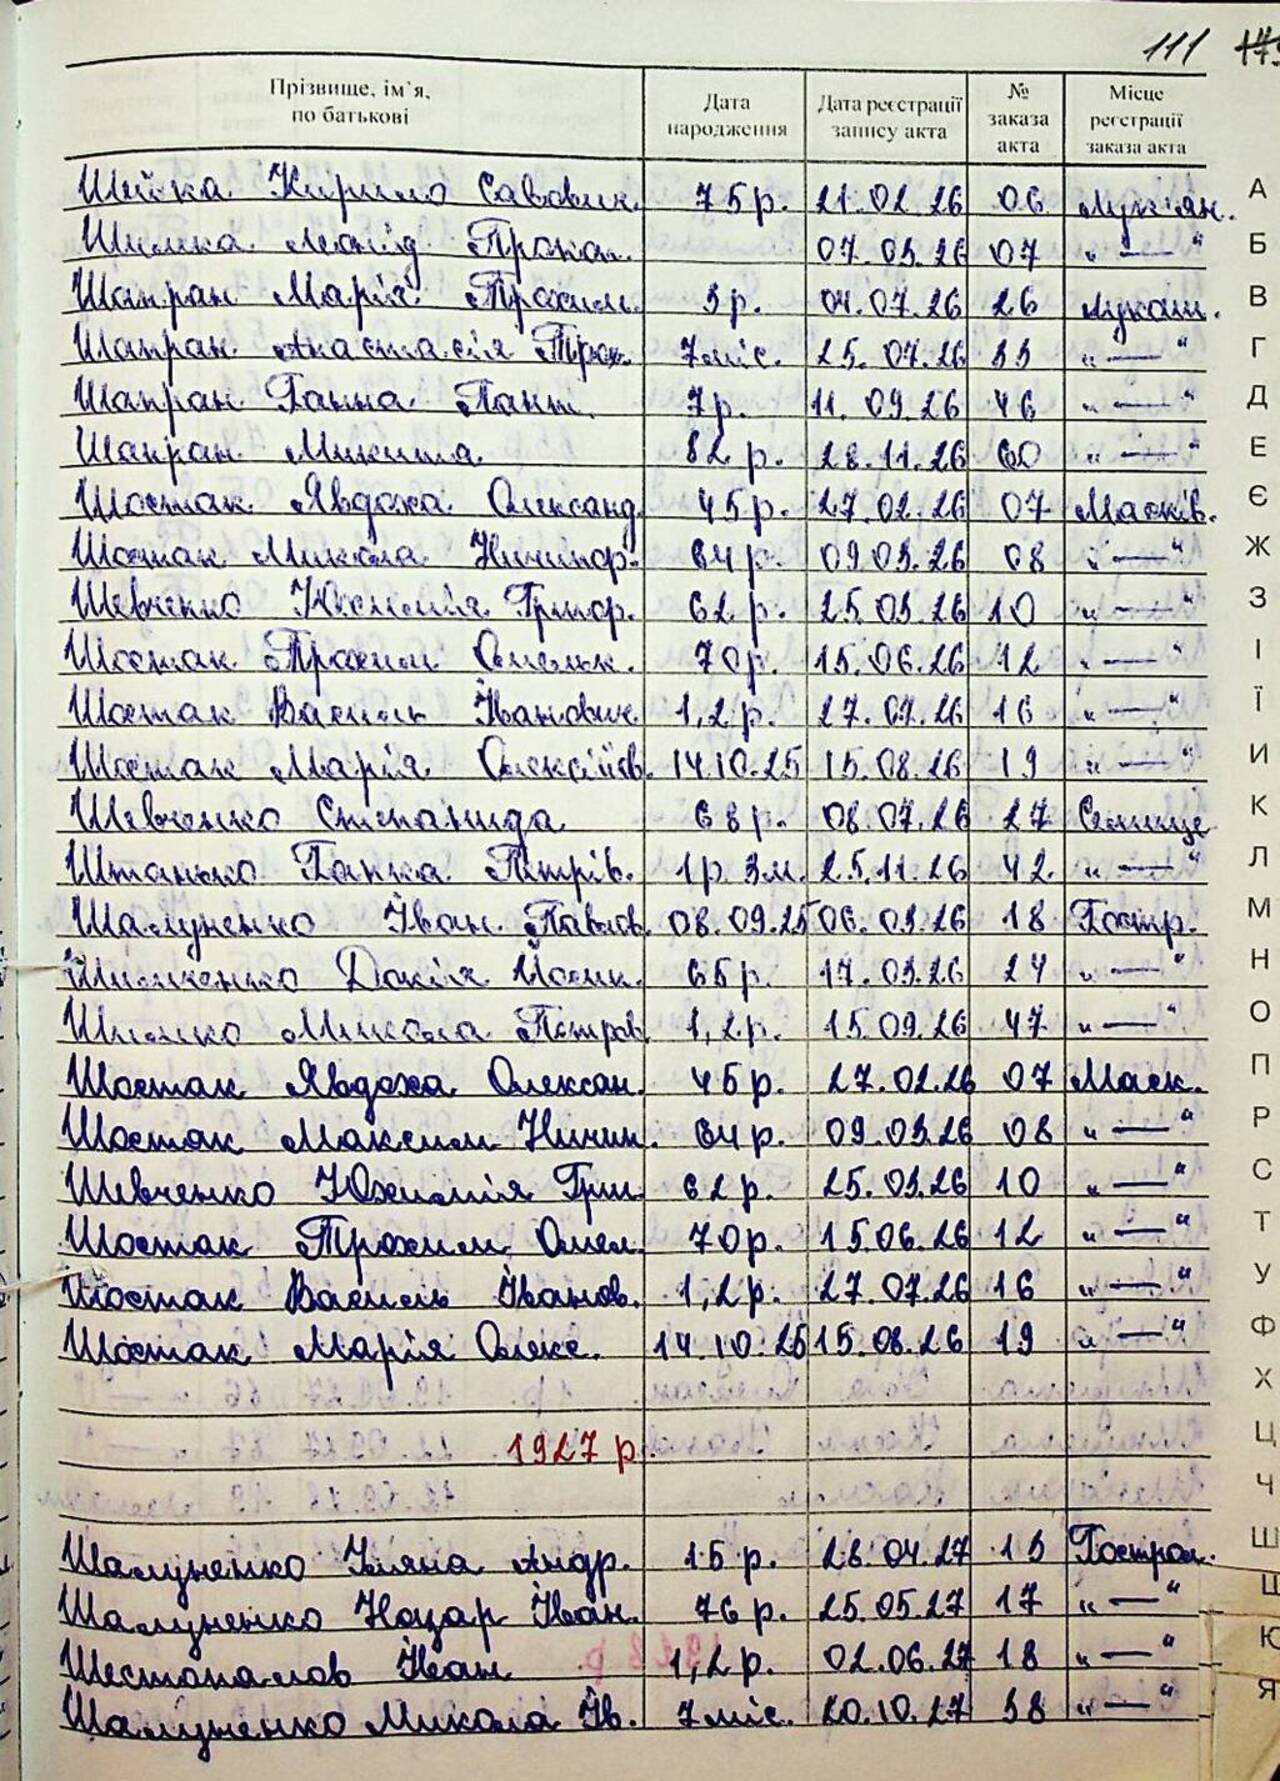 111
Прізвище, ім'я, по батькові Дата народження Дата реєстрації запису акта № заказа акта Місце реєстрації заказа акта
Шийка Кирило Савович. 75 р. 21.02.26 06 Лук'ян.
Шишка Леонід Прокоп. 07.03.26 07 "—"
Шапран Марія Трохим. 3 р. 04.07.26 26 Лукаш.
Шапран Анастасія Трох. 7 міс. 25.07.26 33 "—"
Шапран Ганна Пант. 7 р. 11.09.26 46 "—"
Шапран Микита 82 р. 28.11.26 60 "—"
Шостак Явдоха Олександ. 45 р. 27.02.26 07 Масків.
Шостак Микола Ничипор. 84 р. 09.03.26 08 "—"
Шевченко Юхимія Григор. 62 р. 25.03.26 10 "—"
Шостак Трохим Омельк. 70 р. 15.06.26 12 "—"
Шостак Василь Іванович 1,2 р. 27.07.26 16 "—"
Шостак Марія Олексіїв. 14.10.25 15.08.26 19 "—"
Шевченко Степанида 68 р. 08.07.26 27 Селище
Штанько Ганна Петрів. 1 р. 3 м. 25.11.26 42 "—"
Шалуненко Іван Павлов. 08.09.25 06.03.26 18 Гостр.
Докія Йосип. 65 р. 17.03.26 24 "—"
Микола Петров. 1,2 р. 15.09.26 47 "—"
Шостак Явдоха Олексан. 45 р. 27.02.26 07 Маск.
Шостак Максим Ничип. 84 р. 09.03.26 08 "—"
Шевченко Юхимія Григ. 62 р. 25.03.26 10 "—"
Шостак Трохим Омел. 70 р. 15.06.26 12 "—"
Шостак Василь Іванов. 1,2 р. 27.07.26 16 "—"
Шостак Марія Олекс. 14.10.25 15.08.26 19 "—"
1927 р.
Шалуненко Уляна Андр. 15 р. 28.04.27 13 Гострол.
Шалуненко Назар Іван. 76 р. 25.05.27 17 "—"
Шестопалов Іван 1,2 р. 02.06.27 18 "—"
Шалуненко Микола Ів. 7 міс. 20.10.27 38 "—"
А
Б
В
Г
Д
Е
Є
Ж
З
І
Ї
И
К
Л
М
Н
О
П
Р
С
Т
У
Ф
Х
Ц
Ч
Ш
Щ
Ю
Я